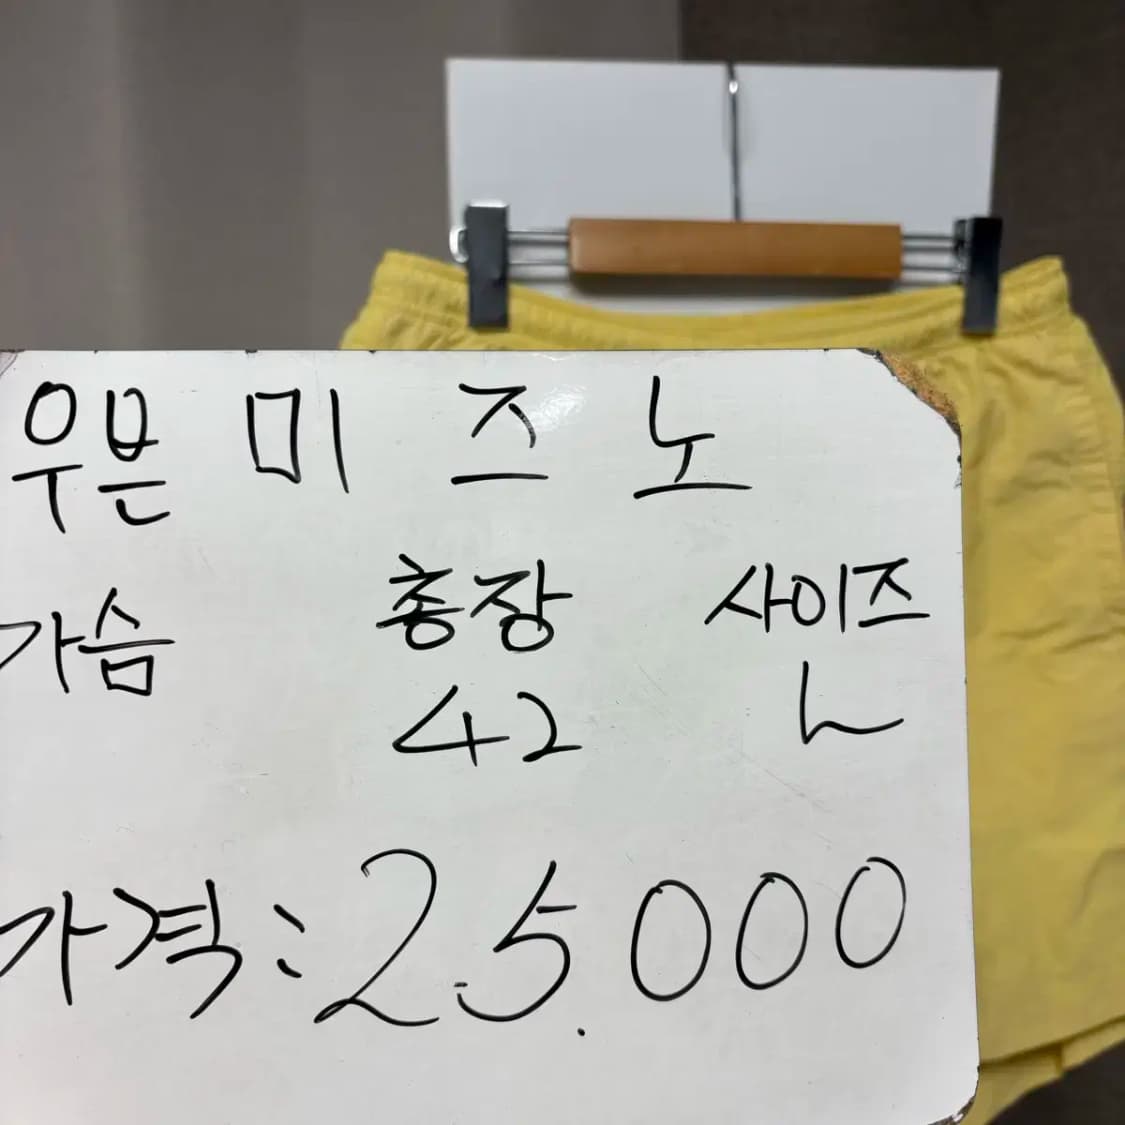 우븐 미즈노
가슴 총장 사이즈
42 L
가격: 25.000